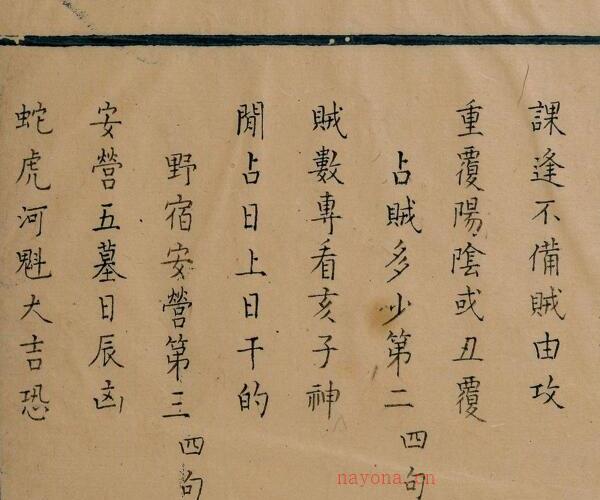 課逢不備賊由攻
重覆陽陰或丑覆
占賊多少第二 四句
賊數專看亥子神
閒占日上日干的
野宿安營第三 四句
安營五墓日辰凶
蛇虎河魁大吉恐
nayona.cn